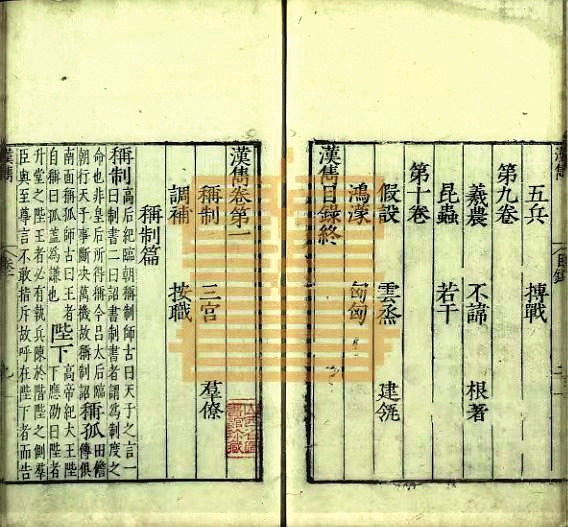 五兵 搏戰
第九卷
羲農 不諱 根著
昆蟲 若干
第十卷
假設 雲烝 建瓴
鴻濛 匈匈
漢雋目錄終
漢雋卷第一
稱制 三宮 羣僚
調補 按職
稱制篇
稱制高后紀臨朝稱制師古曰天子之言一
曰制書二曰詔書制書者謂爲制度之
命也非皇后所得稱今吕太后臨
朝行天子事斷決萬機故稱制詔 稱孤田儋傳俱
南面稱孤師古曰王者 陛下高帝紀大王陛
自稱曰孤蓋爲謙也 下應劭曰陛者
升堂之陛王者必有執兵陳於階陛之側羣
臣與至尊言不敢指斥故呼在陛下者而告
漢雋